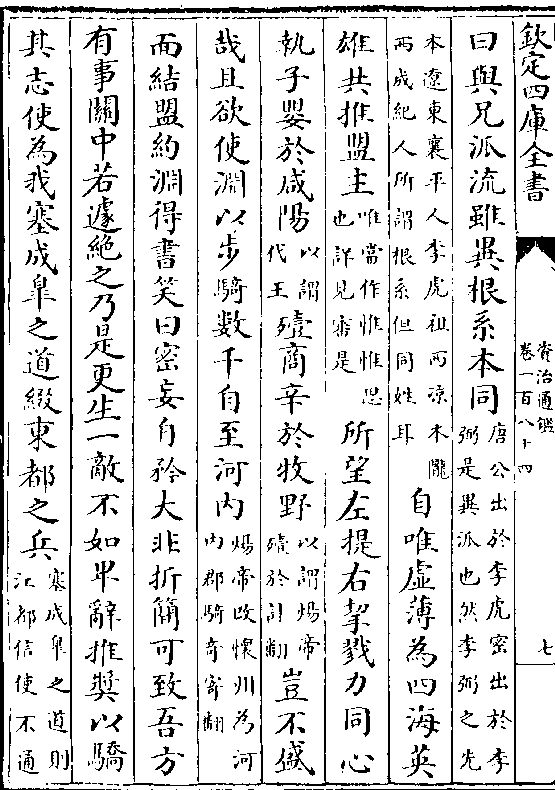 欽定四庫全書
資治通鑑
卷一百八十四
七
曰與兄派流雖異根系本同唐公出於李虎密出於李弼是異派也然李弼之先
本遼東襄平人李虎祖西涼本隴西成紀人所謂根系但同姓耳自唯虛薄為四海英
雄共推盟主唯當作惟惟思也詳見審是所望左提右挈戮力同心
執子嬰於咸陽以謂代王殪商辛於牧野以謂煬帝殪於計翻豈不盛
哉且欲使淵以步騎數千自至河內煬帝改懷州為河內郡騎奇寄翻
面結盟約淵得書笑曰密妄自矜大非折簡可致吾方
有事關中若遽絕之乃是更生一敵不如卑辭推獎以驕
其志使為我塞成臯之道綴東都之兵塞成臯之道則江都信使不通